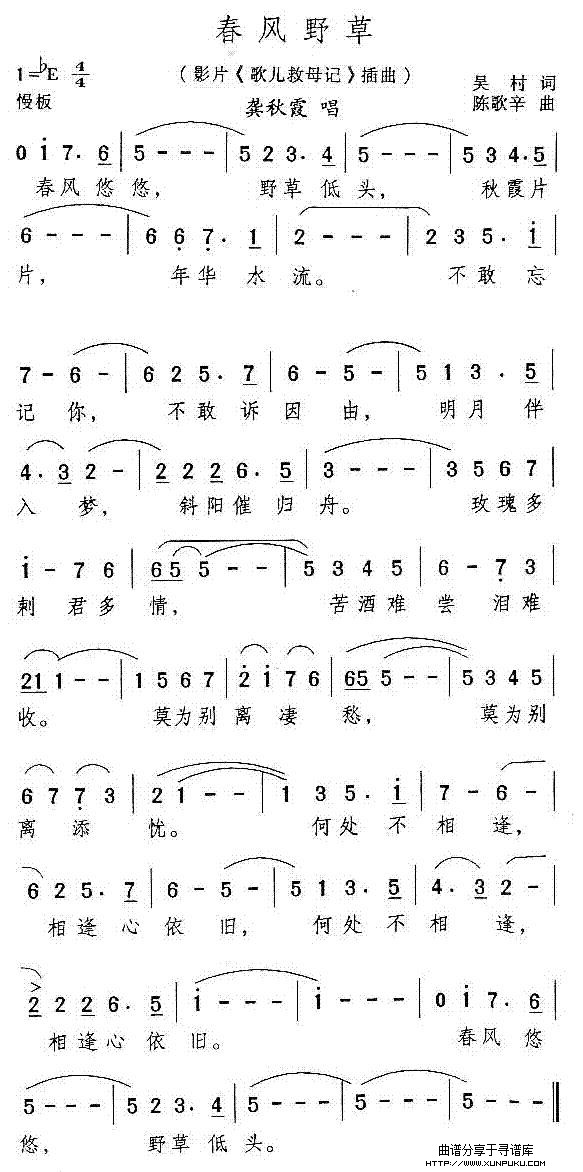 春风野草
1=♭E 4/4
（影片《歌儿救母记》插曲）
吴 村 词
慢板
龚秋霞 唱
陈歌辛 曲
0 i 7. 6 | 5 - - - | 5 2 3. 4 | 5 - - - | 5 3 4. 5 |
春风悠悠， 野草低头， 秋霞片
6 - - - | 6 6 7. 1 | 2 - - - | 2 3 5. i |
片， 年华水流。 不敢忘
7 - 6 - | 6 2 5. 7 | 6 - 5 - | 5 1 3. 5 |
记你， 不敢诉因由， 明月伴
4. 3 2 - | 2 2 2 6. 5 | 3 - - - | 3 5 6 7 |
入梦， 斜阳催归舟。 玫瑰多
i - 7 6 | 65 5 - - | 5 3 4 5 | 6 - 7 3 |
刺君多情， 苦酒难尝泪难
21 1 - - | 1 5 6 7 | 2 i 7 6 | 65 5 - - | 5 3 4 5 |
收。 莫为别离凄愁， 莫为别
6 7 7 3 | 2 1 - - | 1 3 5. i | 7 - 6 - |
离添忧。 何处不相逢，
6 2 5. 7 | 6 - 5 - | 5 1 3. 5 | 4. 3 2 - |
相逢心依旧， 何处不相逢，
2 2 2 6. 5 | i - - - | i - - - | 0 i 7. 6 |
相逢心依旧。 春风悠
5 - - - | 5 2 3. 4 | 5 - - - | 5 - - - ‖
悠， 野草低头。
曲谱分享于寻谱库
HTTP://WWW.XUNPUKU.COM